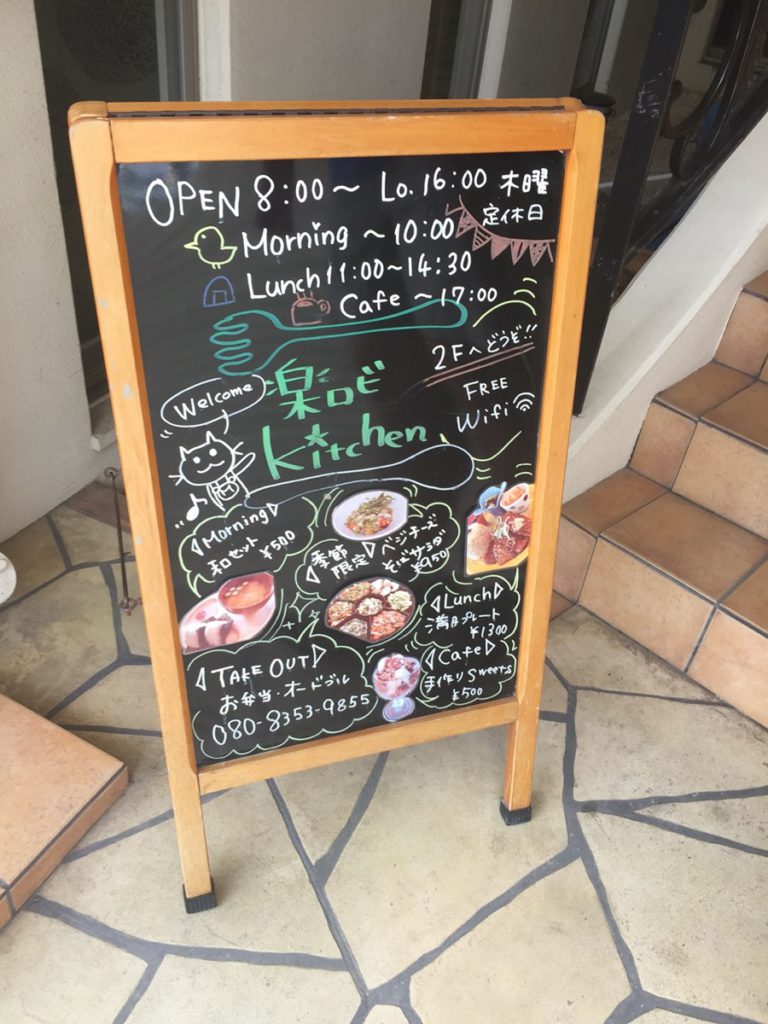 OPEN 8:00〜 Lo.16:00 木曜
定休日
Morning 〜10:00
Lunch 11:00〜14:30
Cafe 〜17:00
2Fへどうぞ!!
FREE
Wifi
Welcome
楽ロビ
kitchen
◁Morning▷
和セット
¥500
◁季節
限定▷
ベジチーズ
そばサラダ
¥950
◁Lunch▷
満月プレート
¥1300
◁TAKE OUT▷
お弁当・オードブル
080-8353-9855
◁Cafe▷
手作りSweets
¥500